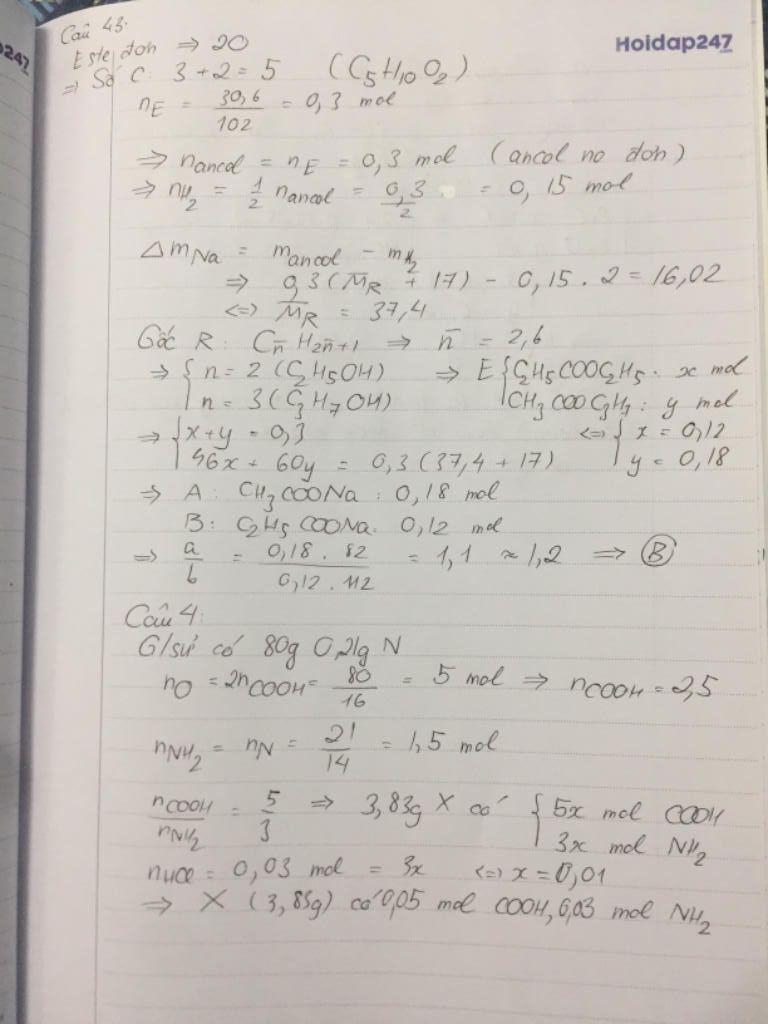 Câu 43:
Hoidap247
.com
Este đơn ⇒ 2O
⇒ Số C: 3 + 2 = 5 (C5H10O2)
nE = 30,6/102 = 0,3 mol
⇒ nancol = nE = 0,3 mol (ancol no đơn)
⇒ nH2 = 1/2 nancol = 0,3/2 = 0,15 mol
ΔmNa = mancol - mH2
⇒ 0,3(M̅R + 17) - 0,15 . 2 = 16,02
<=> M̅R = 37,4
Gốc R: Cn̅H2n̅+1 ⇒ n̅ = 2,6
⇒ { n = 2 (C2H5OH) ⇒ E { C2H5COOC2H5 : x mol
n = 3 (C3H7OH) CH3COOC3H7 : y mol
⇒ { x + y = 0,3 <=> { x = 0,12
46x + 60y = 0,3(37,4 + 17) y = 0,18
⇒ A: CH3COONa : 0,18 mol
B: C2H5COONa: 0,12 mol
⇒ a/b = 0,18 . 82/0,12 . 112 = 1,1 ≈ 1,2 ⇒ B
Câu 4:
G/sử có 80g O,21g N
nO = 2nCOOH = 80/16 = 5 mol ⇒ nCOOH = 2,5
nNH2 = nN = 21/14 = 1,5 mol
nCOOH/nNH2 = 5/3 ⇒ 3,83g X có { 5x mol COOH
3x mol NH2
nHCl = 0,03 mol = 3x <=> x = 0,01
⇒ X (3,83g) có 0,05 mol COOH, 0,03 mol NH2
247